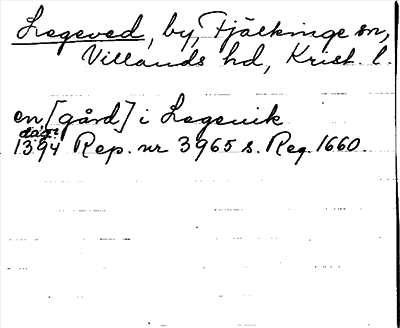 Legeved, by, Fjälkinge sn,
Villands hd, Krist. l.
en [gård] i Legeuik
dat:
1394 Rep. nr 3965 s. Reg. 1660.